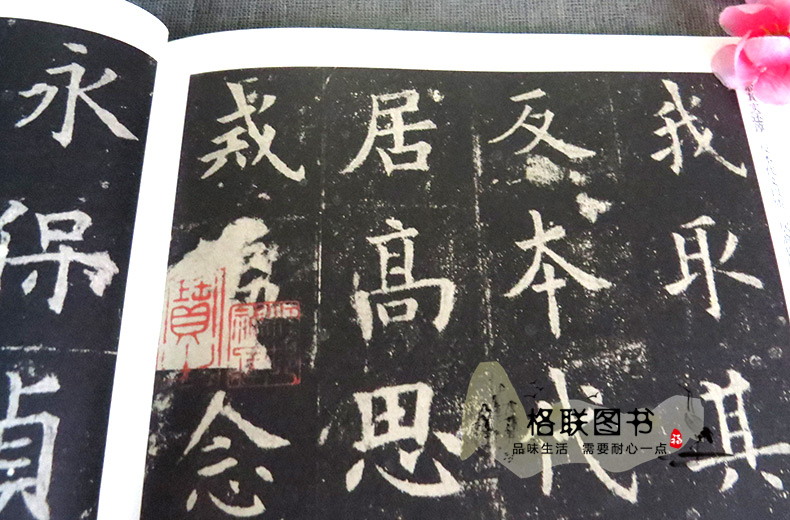 我取其
反本代
居高思
戒念
永保貞
格联图书
品味生活 需要耐心一点